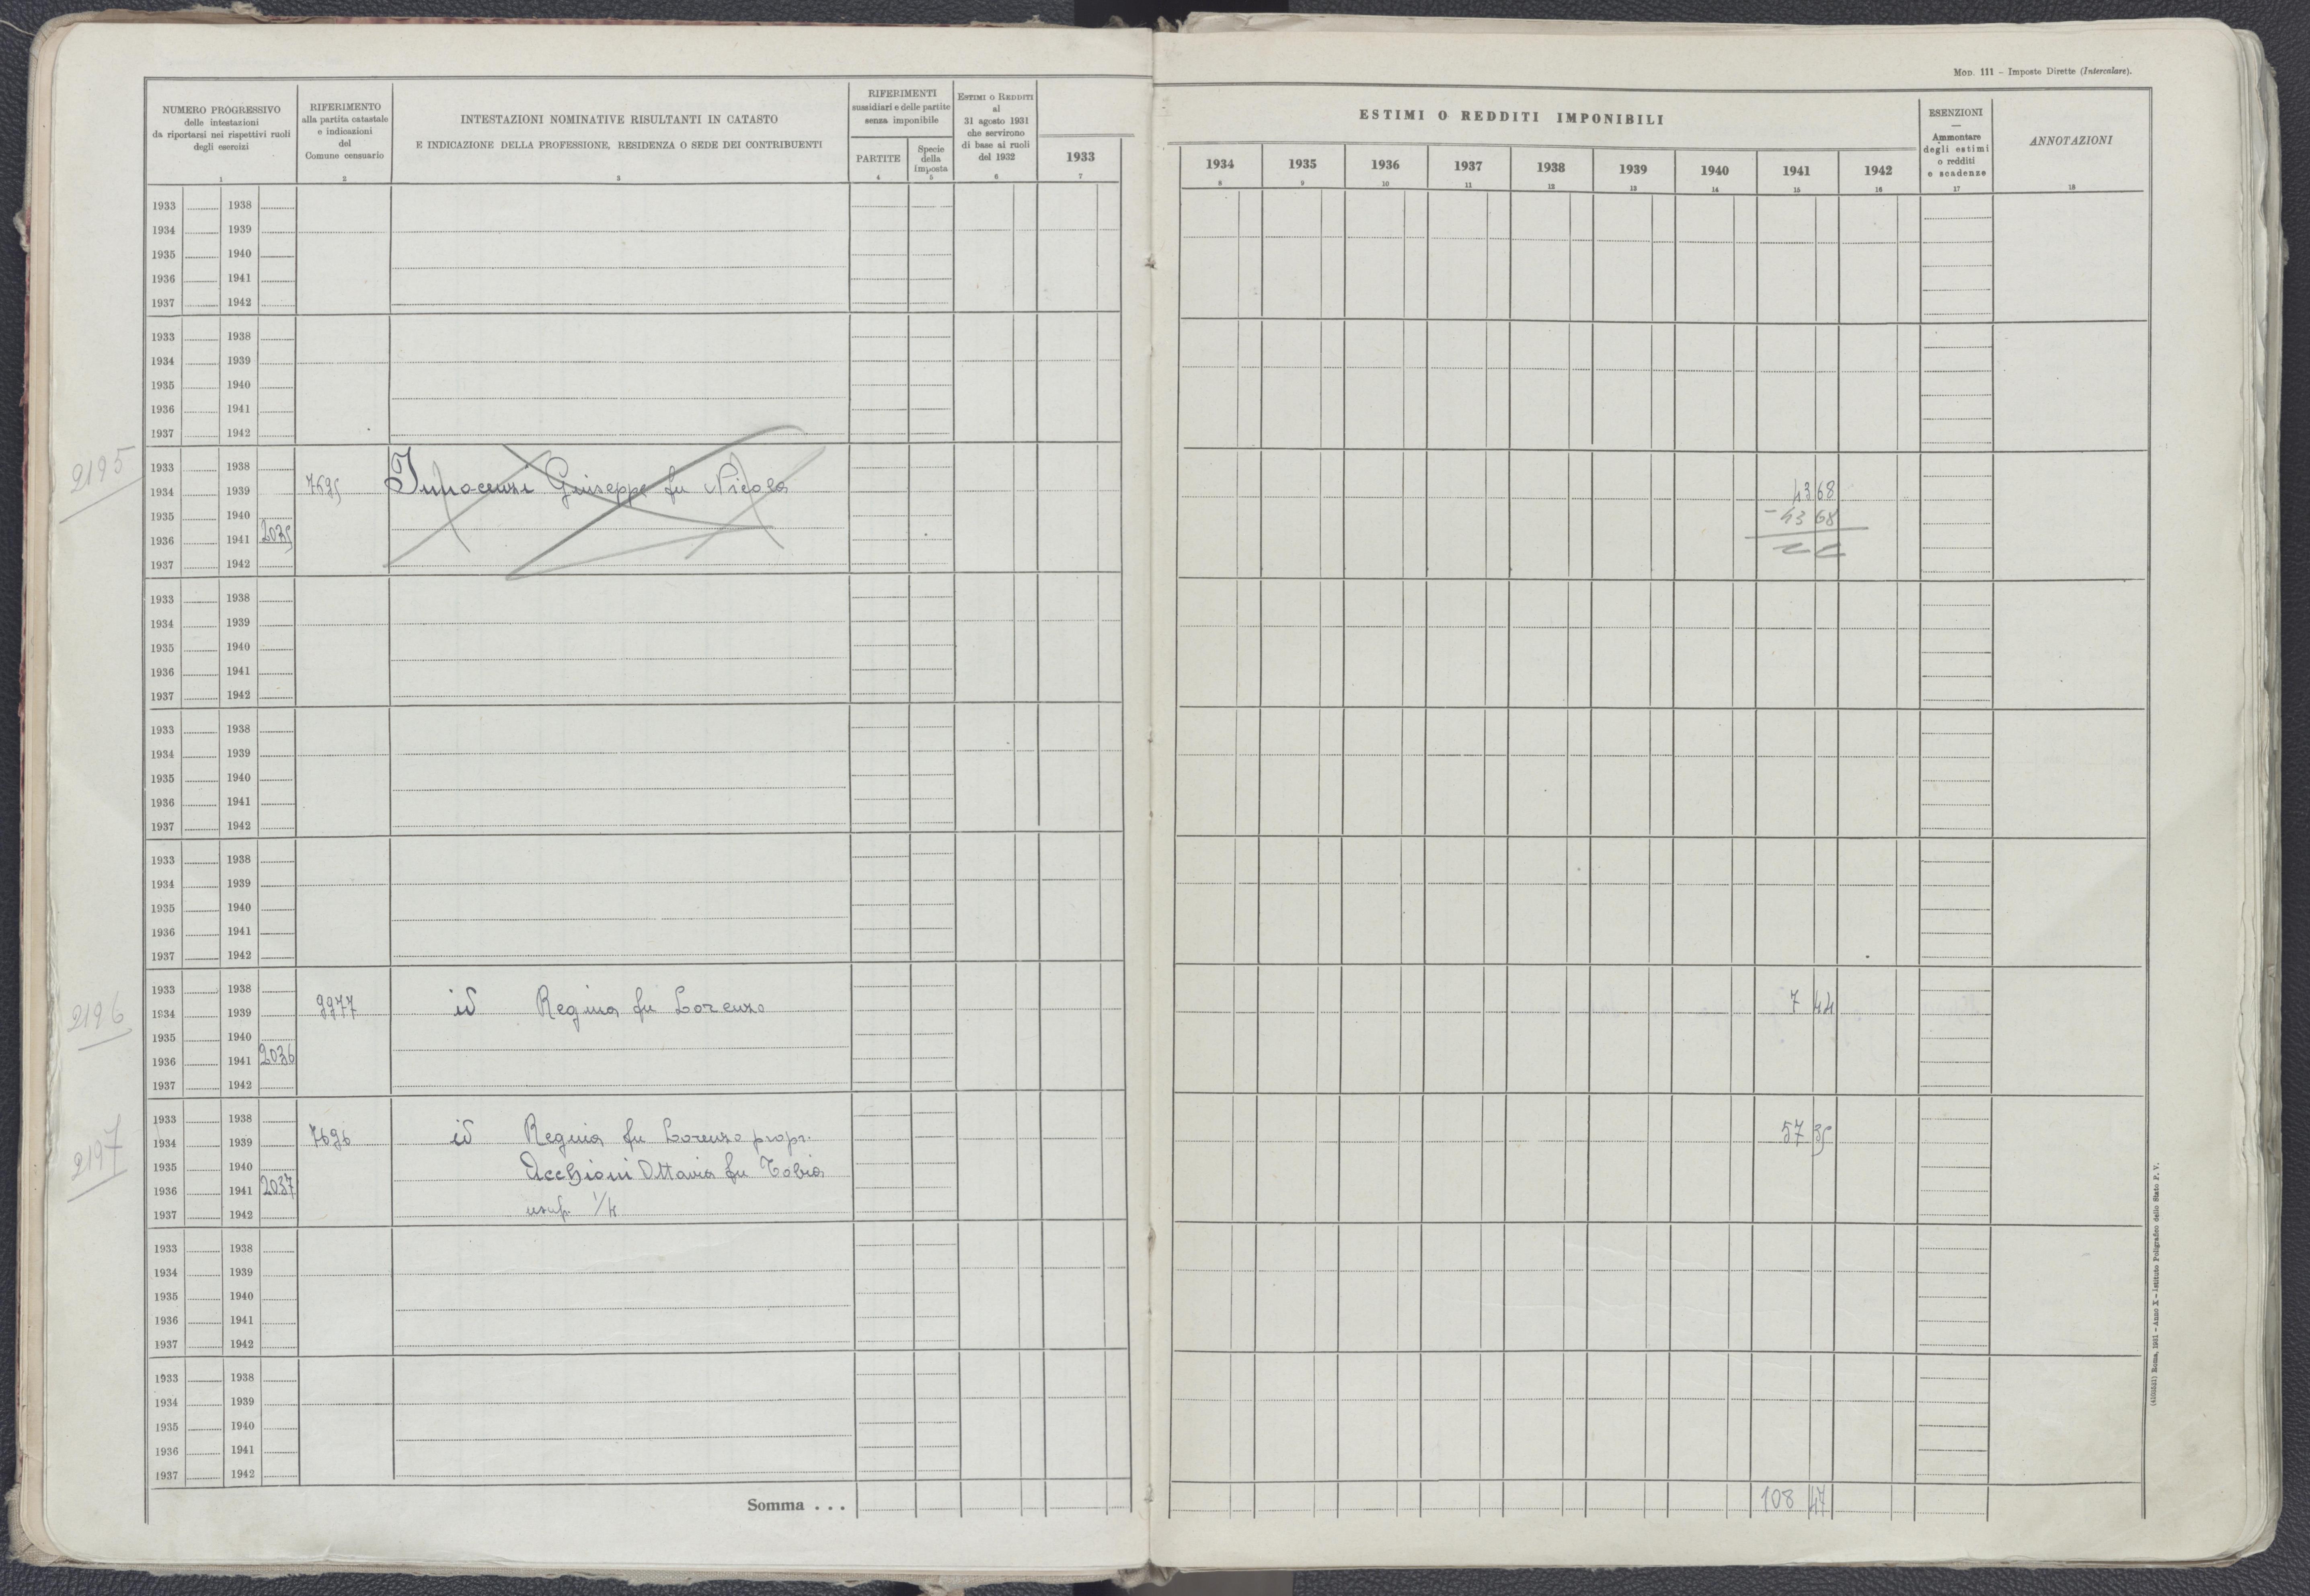 Mod. 111 – Imposte Dirette (Intercalare).
NUMERO PROGRESSIVO
delle intestazioni
da riportarsi nei rispettivi ruoli
degli esercizi
1
RIFERIMENTO
alla partita catastale
e indicazioni
del
Comune censuario
2
INTESTAZIONI NOMINATIVE RISULTANTI IN CATASTO
E INDICAZIONE DELLA PROFESSIONE, RESIDENZA O SEDE DEI CONTRIBUENTI
3
RIFERIMENTI
sussidiari e delle partite
senza imponibile
PARTITE
4
Specie
della
imposta
5
Estimi o Redditi
al
31 agosto 1931
che servirono
di base ai ruoli
del 1932
6
1933
7
ESTIMI O REDDITI IMPONIBILI
1934 1935 1936 1937 1938 1939 1940 1941 1942
8 9 10 11 12 13 14 15 16
ESENZIONI
—
Ammontare
degli estimi
o redditi
e scadenze
17
ANNOTAZIONI
18
1933 1938
1934 1939
1935 1940
1936 1941
1937 1942
1933 1938
1934 1939
1935 1940
1936 1941
1937 1942
2195
1933 1938
1934 1939 7695 Innocenzi Giuseppe fu Nicola 43 68
1935 1940 - 43 68
1936 1941 2035
1937 1942
1933 1938
1934 1939
1935 1940
1936 1941
1937 1942
1933 1938
1934 1939
1935 1940
1936 1941
1937 1942
1933 1938
1934 1939
1935 1940
1936 1941
1937 1942
2196
1933 1938
1934 1939 9977 id Regina fu Lorenzo 7 44
1935 1940
1936 1941 2036
1937 1942
2197
1933 1938
1934 1939 7696 id Regina fu Lorenzo propr. 57 35
1935 1940 Acchioni Ottavia fu Tobia
1936 1941 2037
1937 1942 usuf. 1/4
1933 1938
1934 1939
1935 1940
1936 1941
1937 1942
1933 1938
1934 1939
1935 1940
1936 1941
1937 1942
Somma . . . 108 47
Roma, 1931 – Anno X – Istituto Poligrafico dello Stato P. V.